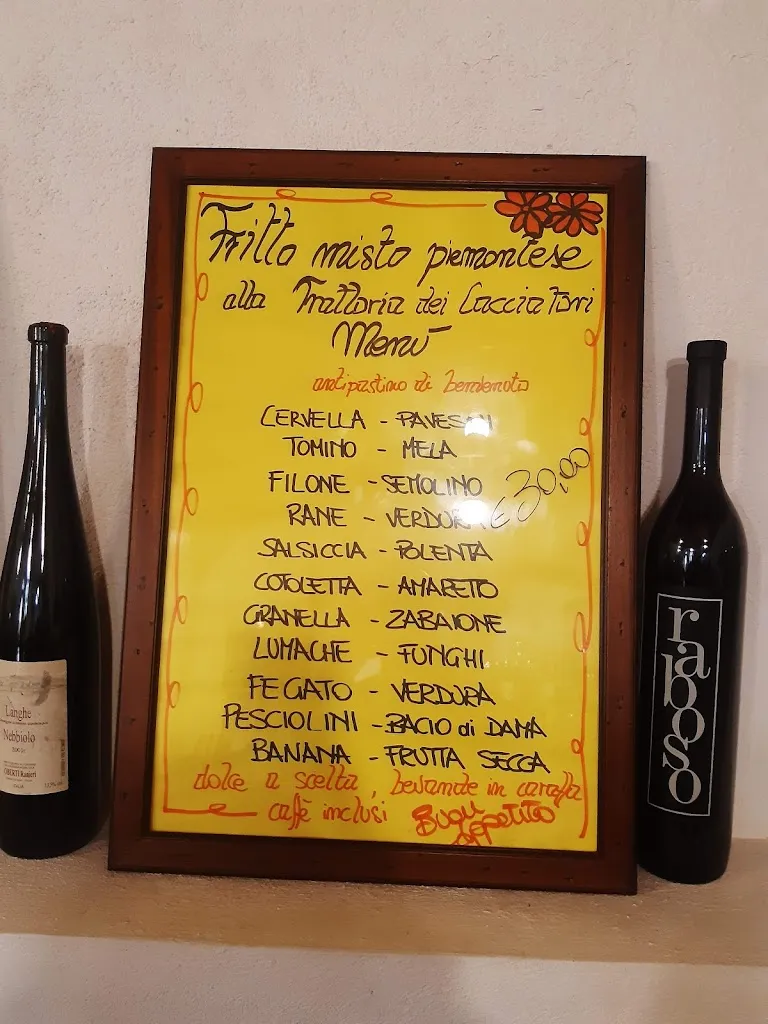 Fritto misto piemontese
alla Trattoria dei Cacciatori
Menù
antipastino di benvenuto
CERVELLA - PAVESINI
TOMINO - MELA
FILONE - SEMOLINO
€30,00
RANE - VERDURA
SALSICCIA - POLENTA
COTOLETTA - AMARETTO
GRANELLA - ZABAIONE
LUMACHE - FUNGHI
FEGATO - VERDURA
PESCIOLINI - BACIO di DAMA
BANANA - FRUTTA SECCA
dolce a scelta, bevande in caraffa
caffè inclusi
Buon
appetito
Langhe
Nebbiolo
raboso